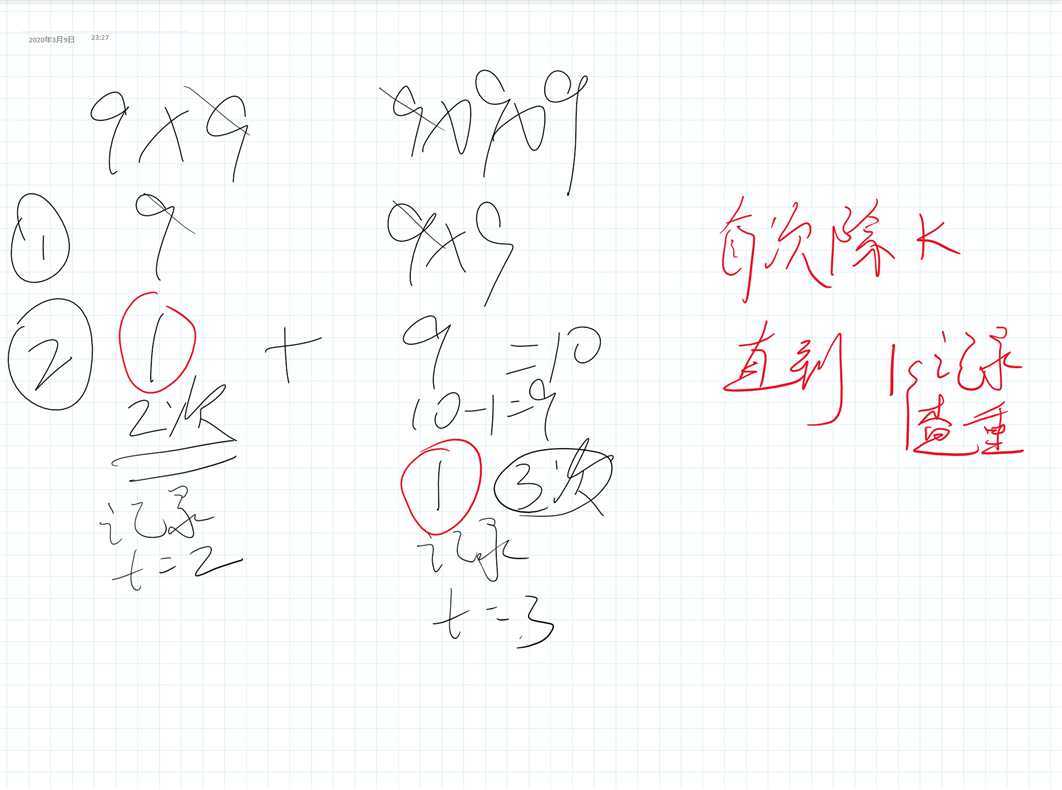 2020年3月9日 23:27
9×9 9×9×9
① 9 9×9
② 1 + 9 =10
2次 10-1=9
1 3次
记录 记录
t=2 t=3
每次除K
直到 1 记录
查重